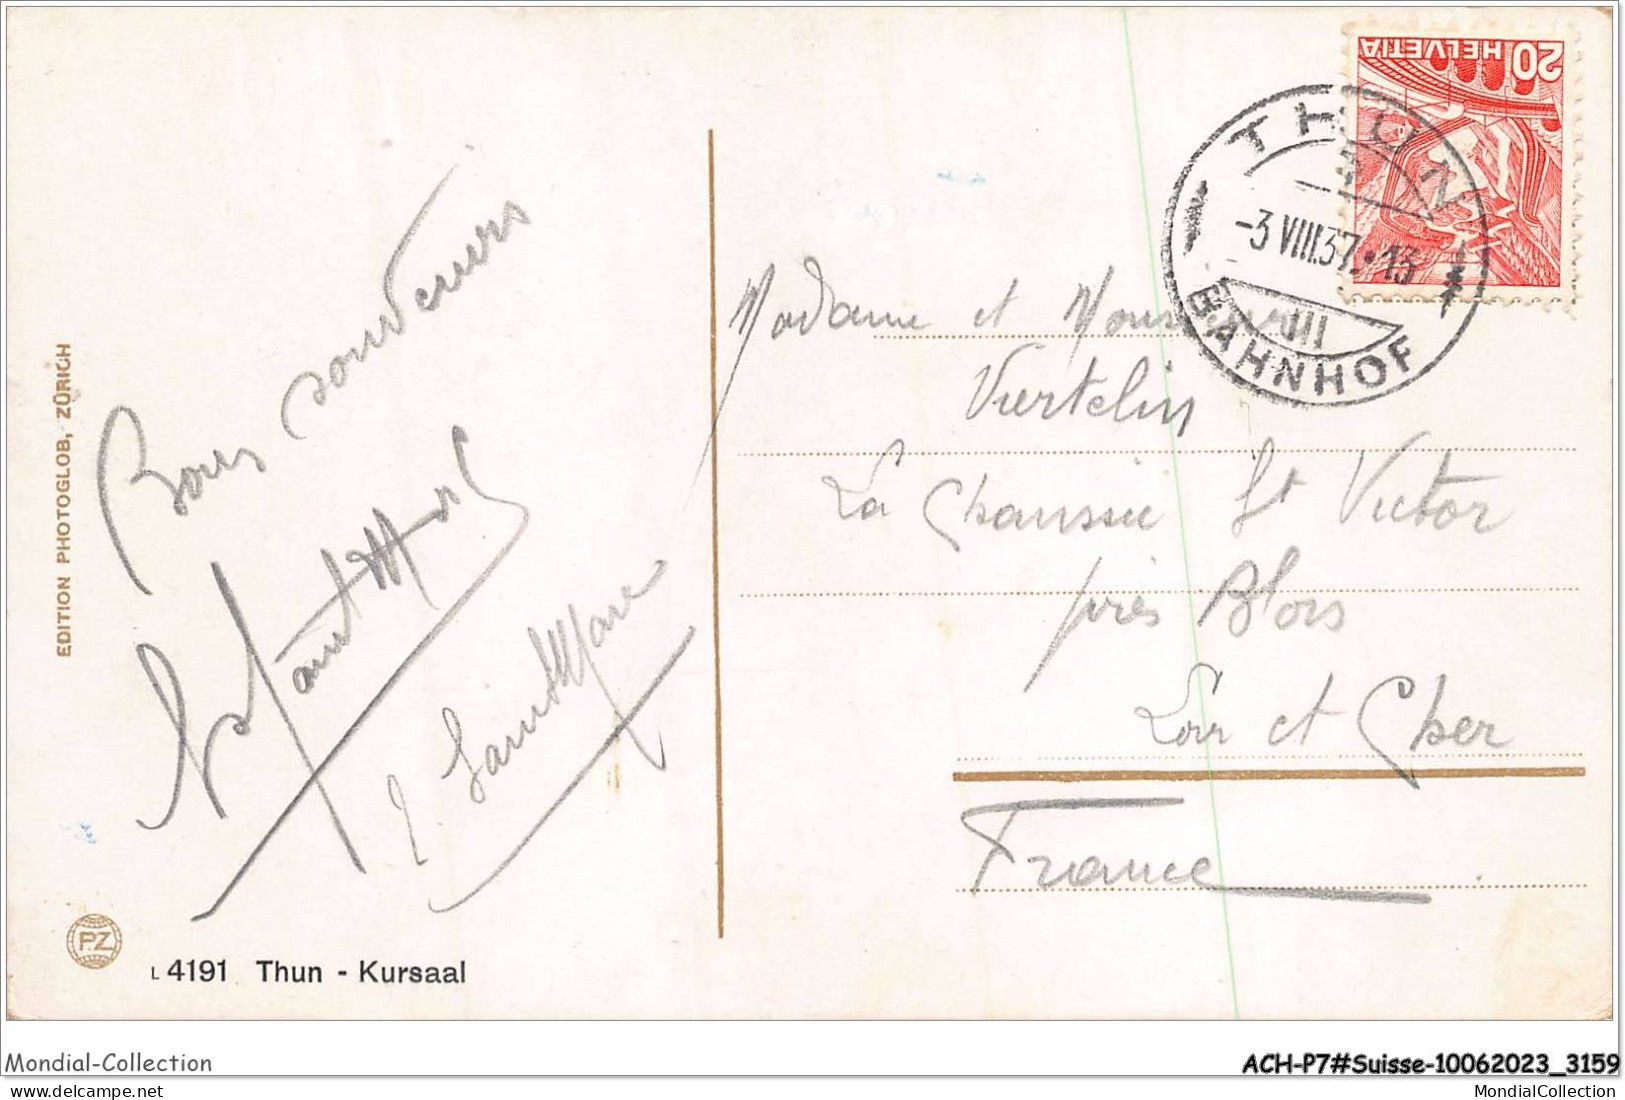 20 HELVETIA
THUN
-3.VIII.37.-13
VIII
BAHNHOF
Bons souvenirs
Saint Marc
Saint Marc
Madame et Mons
La Chaussée St Victor
près Blois
Loir et Cher
France
EDITION PHOTOGLOB, ZÜRICH
PZ
L 4191 Thun - Kursaal
Mondial-Collection
ACH-P7#Suisse-10062023_3159
MondialCollection